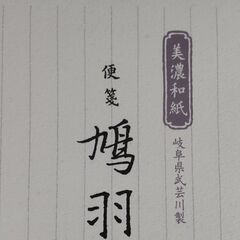 美濃和紙
岐阜県武芸川製
便箋
鳩羽